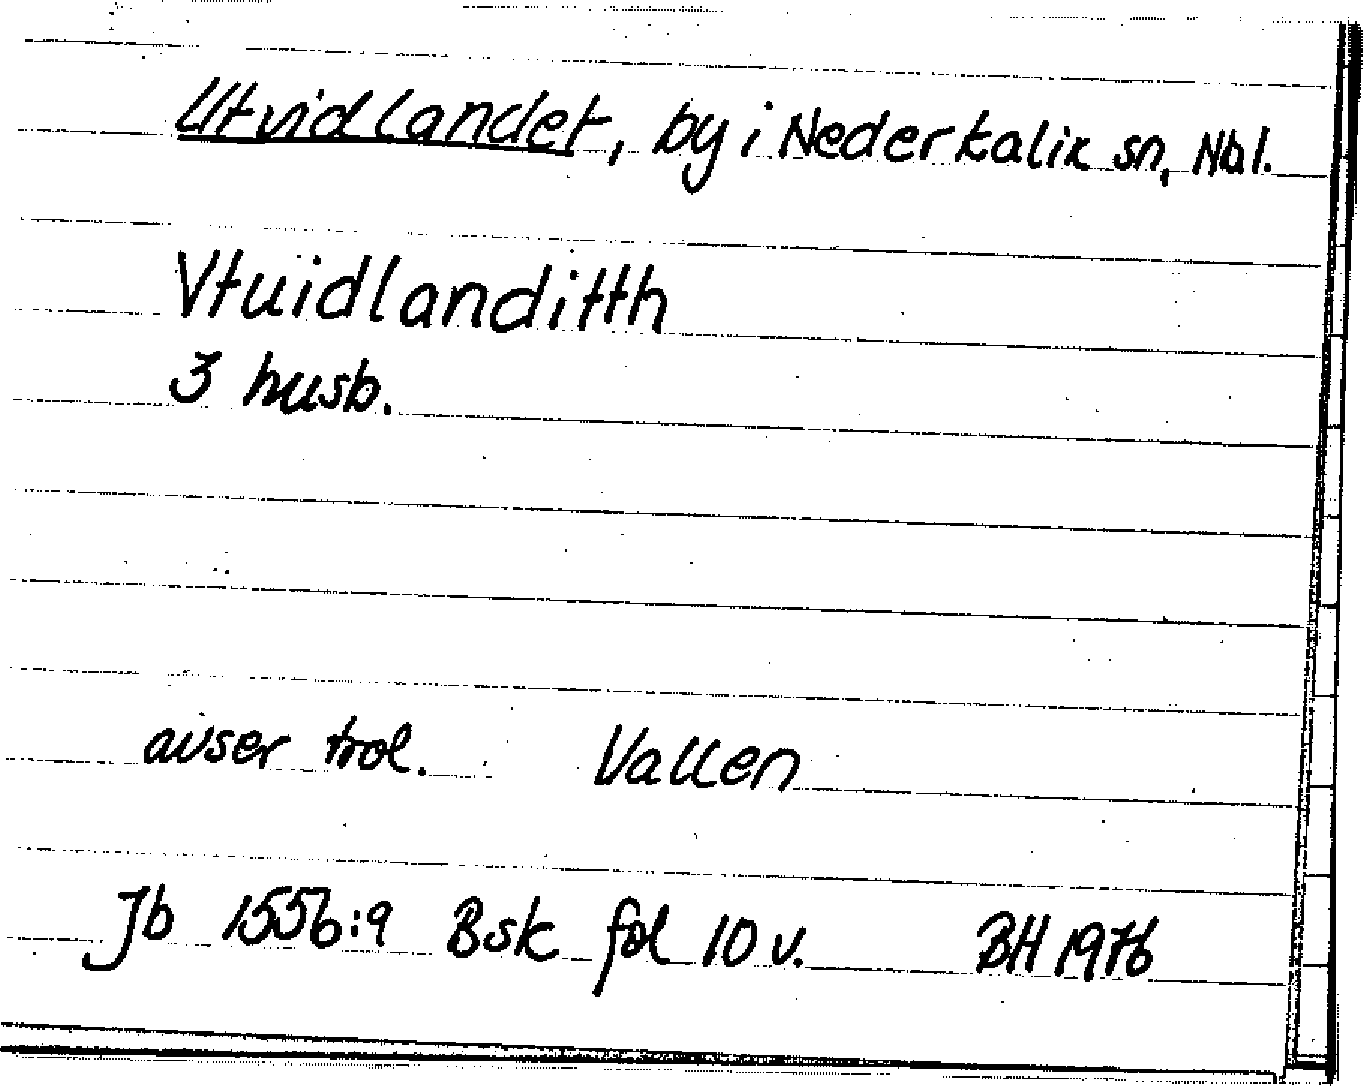 Utvidlandet, by i Nederkalix sn, Nbl.
Vtuidlanditth
3 husb.
avser trol. Vallen
Jb 1556:9 Bsk fol 10 v. BH 1976